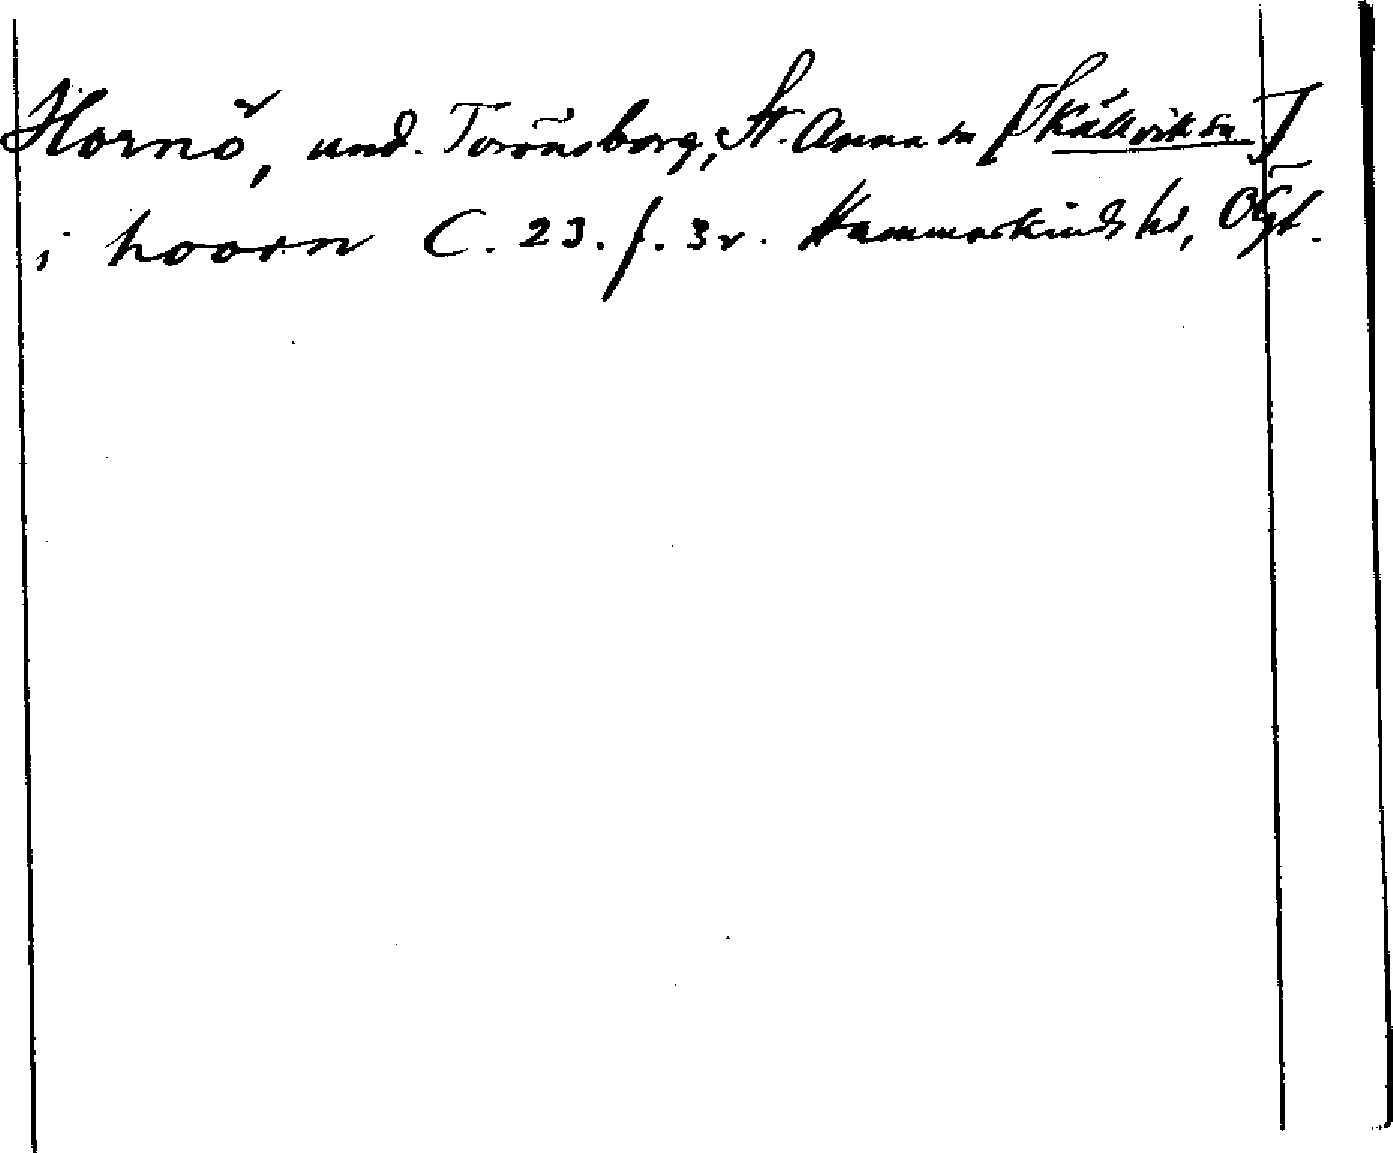 Hornö, und. Torönsborg, St. Anna sn [Skällvik sn]
i hoorn C. 23. f. 3 v. Hammarkinds hd, Ögt.